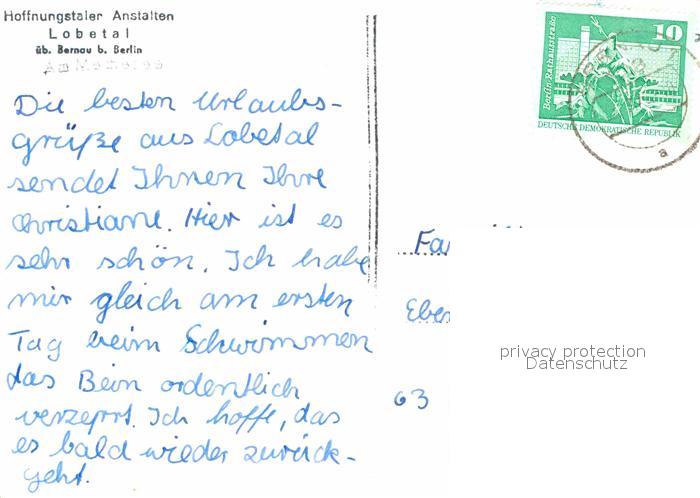 Hoffnungstaler Anstalten
Lobetal
üb. Bernau b. Berlin
Die besten Urlaubs-
grüße aus Lobetal
sendet Ihnen Ihre
Christiane. Hier ist es
sehr schön. Ich habe
mir gleich am ersten
Tag beim Schwimmen
das Bein ordentlich
verzerrt. Ich hoffe, das
es bald wieder zurück-
geht.
10
Berlin Rathausstraße
DEUTSCHE DEMOKRATISCHE REPUBLIK
a
Fa
Eber
63
privacy protection
Datenschutz